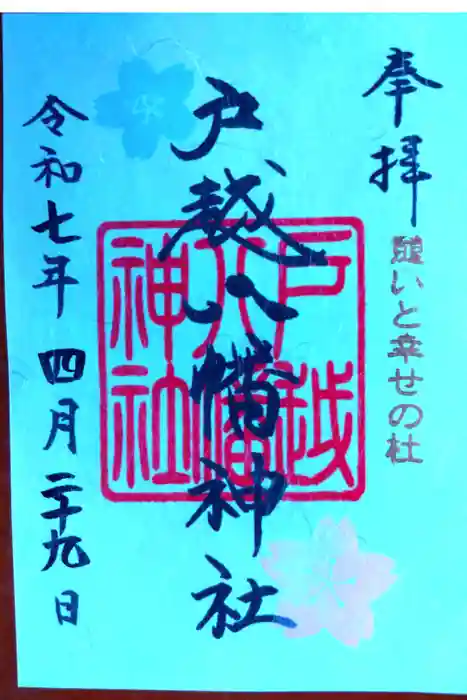 奉拝
と幸せの杜
戸越八幡神社
戸越
八幡
神社
令和七年 四月二十九日